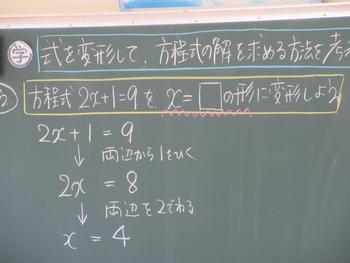 学 式を変形して、方程式の解を求める方法を考
方程式 2x+1=9 を、x=□の形に変形しよう。
2x+1=9
↓ 両辺から1をひく
2x = 8
↓ 両辺を2でわる
x = 4